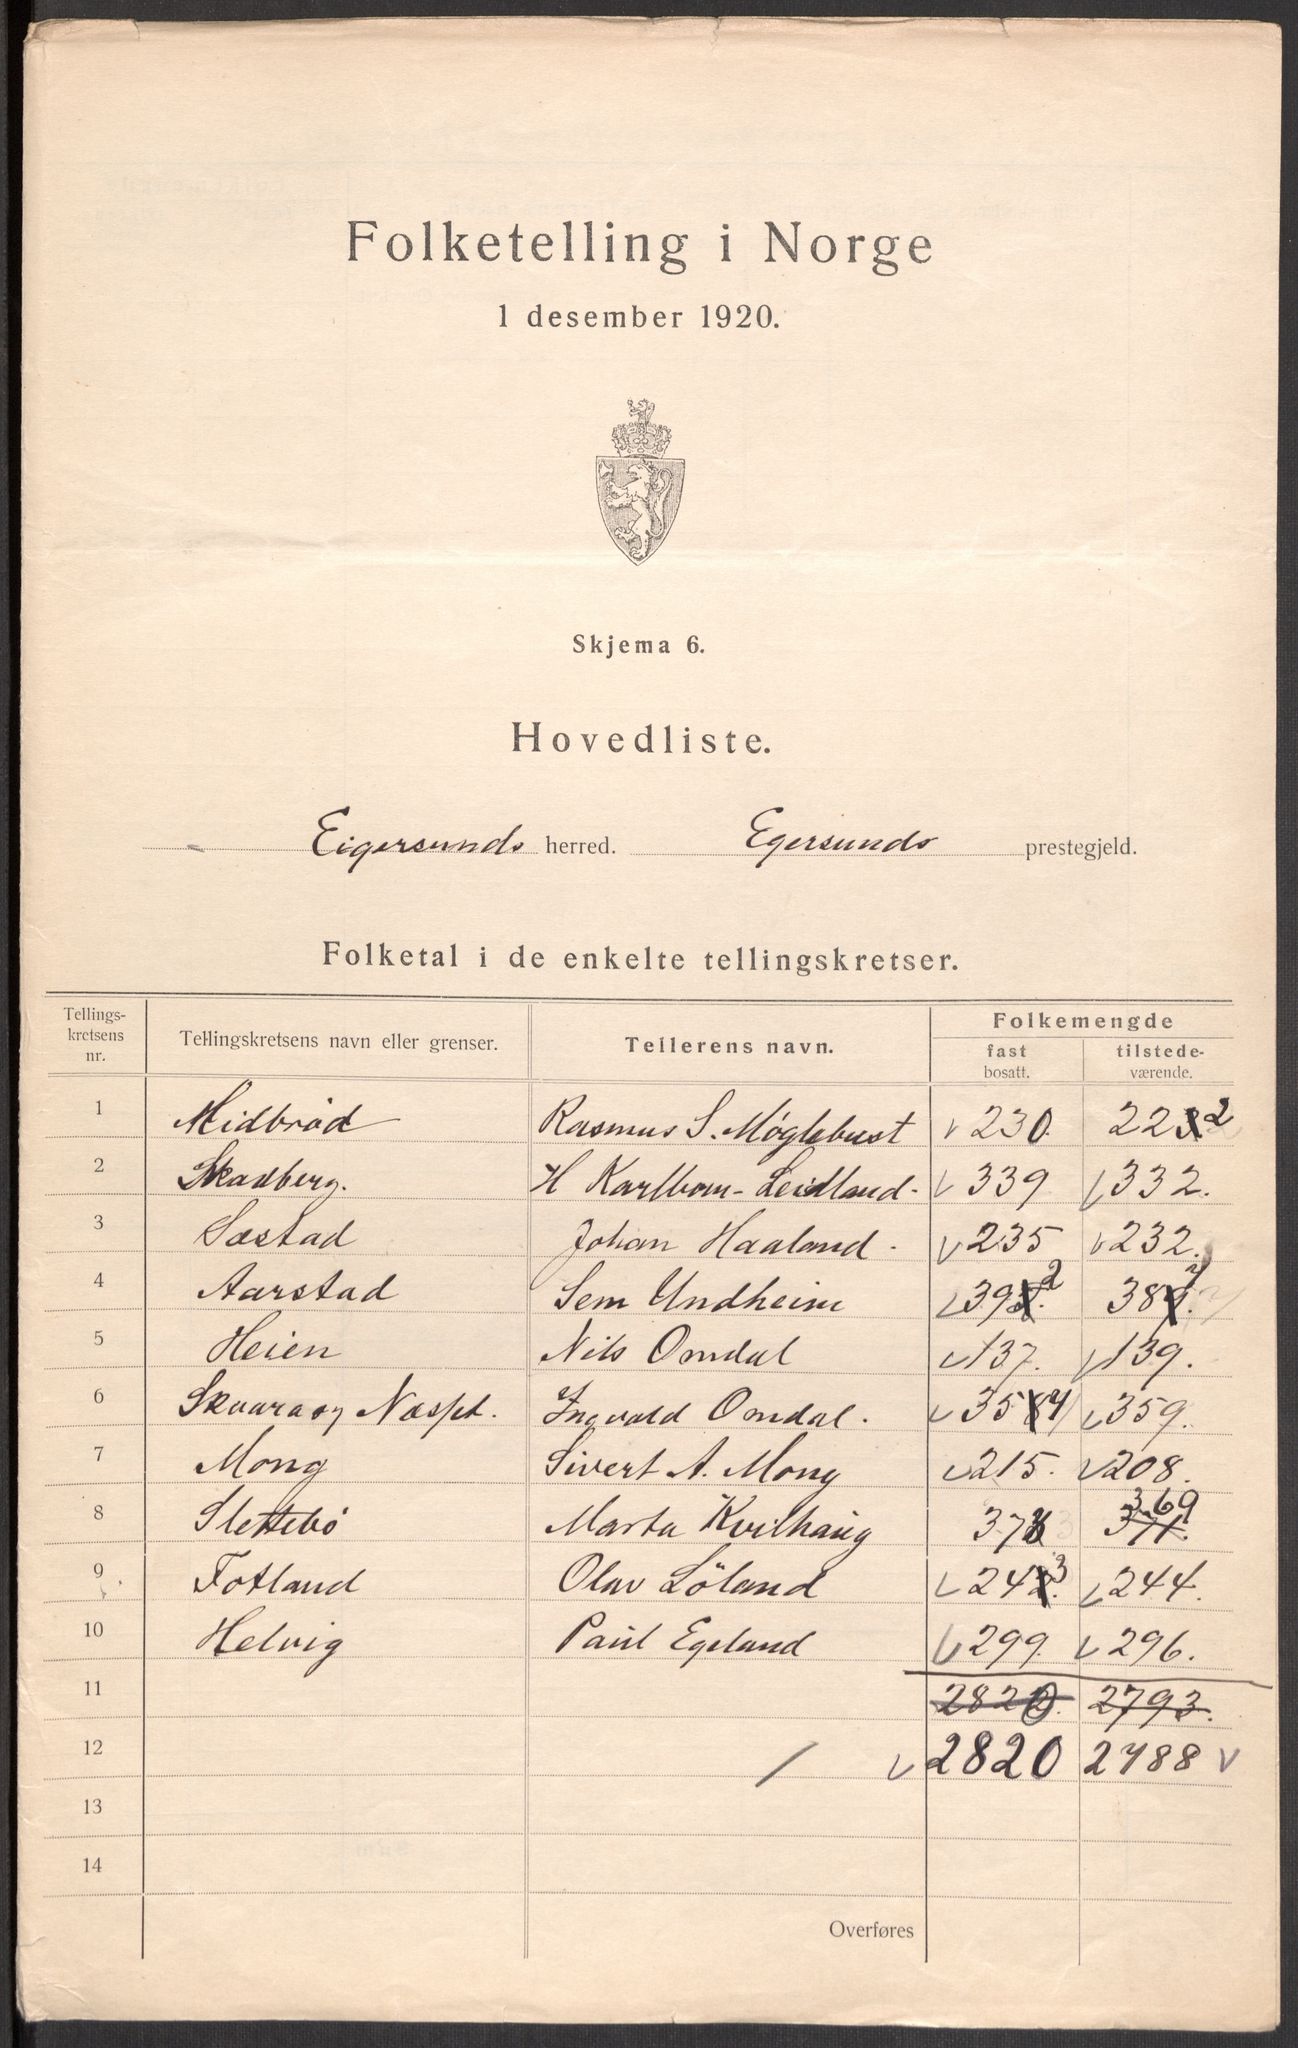 Folketelling i Norge
1 desember 1920.
Skjema 6.
Hovedliste.
Eigersunds herred. Egersunds prestegjeld.
Folketal i de enkelte tellingskretser.
Tellings-
kretsens
nr.
Tellingskretsens navn eller grenser.
Tellerens navn.
Folkemengde
fast
bosatt.
tilstede-
værende.
1 Midbröd Rasmus S. Möglebust 230. 222
2 Skadberg. H Karlbom-Leidland. 339 332.
3 Sæstad Johan Haaland. 235 232.
4 Aarstad Sem Undheim 392 387
5 Heien Nils Omdal 137. 139.
6 Skaara og Næspt. Ingvald Omdal. 357 359.
7 Mong Sivert A. Mong 215. 208.
8 Slettebö Marta Kvilhaug 373 371. 369
9 Fotland Olav Löland 243 244.
10 Helvig Paul Egeland 299. 296.
11 2822. 2793.
12 2820 2788
13
14
Overføres